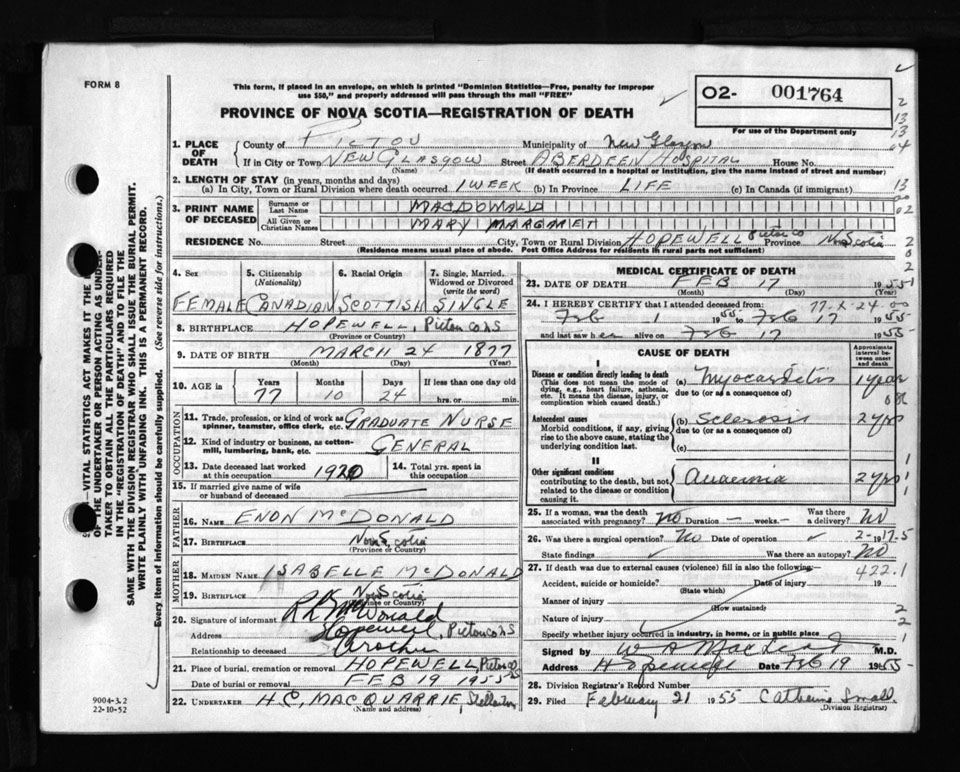 FORM 8
This form, if placed in an envelope, on which is printed "Dominion Statistics—Free, penalty for improper
use $50," and properly addressed will pass through the mail "FREE"
PROVINCE OF NOVA SCOTIA—REGISTRATION OF DEATH
O2- 001764
For use of the Department only
1. PLACE OF DEATH
County of PICTOU Municipality of New Glasgow
If in City or Town NEW GLASGOW Street ABERDEEN HOSPITAL House No.
(Name) (If death occurred in a hospital or institution, give the name instead of street and number)
2. LENGTH OF STAY (in years, months and days)
(a) In City, Town or Rural Division where death occurred 1 WEEK (b) In Province LIFE (c) In Canada (if immigrant)
3. PRINT NAME OF DECEASED
Surname or Last Name MACDONALD
All Given or Christian Names MARY MARGARET
RESIDENCE No. Street City, Town or Rural Division HOPEWELL Pictou Co Province N.Scotia
(Residence means usual place of abode. Post Office Address for Residents in rural parts not sufficient)
4. Sex FEMALE
5. Citizenship (Nationality) CANADIAN
6. Racial Origin SCOTTISH
7. Single, Married, Widowed or Divorced (write the word) SINGLE
8. BIRTHPLACE HOPEWELL, Pictou Co NS
(Province or Country)
9. DATE OF BIRTH MARCH 24 1877
(Month) (Day) (Year)
10. AGE in Years 77 Months 10 Days 24 If less than one day old
hrs. or min.
OCCUPATION
11. Trade, profession, or kind of work as spinner, teamster, office clerk, etc. GRADUATE NURSE
12. Kind of industry or business, as cotton-mill, lumbering, bank, etc. GENERAL
13. Date deceased last worked at this occupation 1920
14. Total yrs. spent in this occupation
15. If married give name of wife or husband of deceased
FATHER
16. NAME ENON McDONALD
17. BIRTHPLACE Nova Scotia
(Province or Country)
MOTHER
18. MAIDEN NAME ISABELLE McDONALD
19. BIRTHPLACE N. Scotia
(Province or Country)
20. Signature of informant McDonald
Address Hopewell, Pictou Co NS
Relationship to deceased Brother
21. Place of burial, cremation or removal HOPEWELL, Pictou Co
Date of burial or removal FEB 19 1955
22. UNDERTAKER H.C. MACQUARRIE, Stellarton
(Name and address)
MEDICAL CERTIFICATE OF DEATH
23. DATE OF DEATH FEB 17 1955
(Month) (Day) (Year)
77-X-24.00
24. I HEREBY CERTIFY that I attended deceased from:
Feb 1 1955 to Feb 17 1955
and last saw her alive on Feb 17 1955
CAUSE OF DEATH
Approximate interval between onset and death
I
Disease or condition directly leading to death
(This does not mean the mode of dying, e.g., heart failure, asthenia, etc. It means the disease, injury, or complication which caused death.)
(a) Myocarditis 1 year
due to (or as a consequence of)
Antecedent causes
Morbid conditions, if any, giving rise to the above cause, stating the underlying condition last.
(b) Sclerosis 2 yrs
due to (or as a consequence of)
(c)
II
Other significant conditions contributing to the death, but not related to the disease or condition causing it.
Anaemia 2 yrs
25. If a woman, was the death associated with pregnancy? No Duration — weeks. — Was there a delivery? No
26. Was there a surgical operation? No Date of operation
2-17-5
State findings Was there an autopsy? No
27. If death was due to external causes (violence) fill in also the following:—
422.1
Accident, suicide or homicide? Date of injury 19
(State which)
Manner of injury
(How sustained)
Nature of injury
Specify whether injury occurred in industry, in home, or in public place
Signed by W A MacLeod M.D.
Address Hopewell Date Feb 19 1955
28. Division Registrar's Record Number
29. Filed February 21 1955 Catherine Small
(Division Registrar)
VITAL STATISTICS ACT MAKES IT THE
OF THE UNDERTAKER OR PERSON ACTING AS UNDER-
TAKER TO OBTAIN ALL THE PARTICULARS REQUIRED
IN THE "REGISTRATION OF DEATH" AND TO FILE THE
SAME WITH THE DIVISION REGISTRAR WHO SHALL ISSUE THE BURIAL PERMIT.
WRITE PLAINLY WITH UNFADING INK. THIS IS A PERMANENT RECORD.
Every item of information should be carefully supplied. (See reverse side for instructions.)
9004-3.2
22-10-52